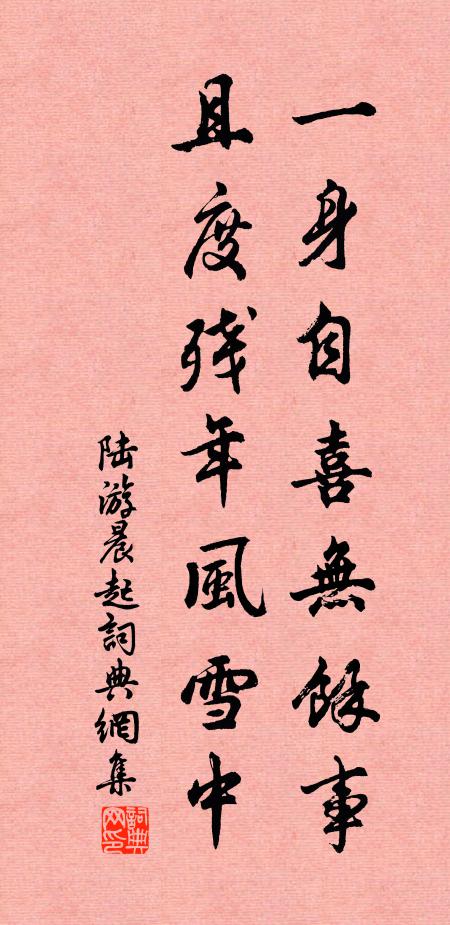 一身自喜無餘事
且度残年風雪中
陆游晨起詞典網集
詞典网印